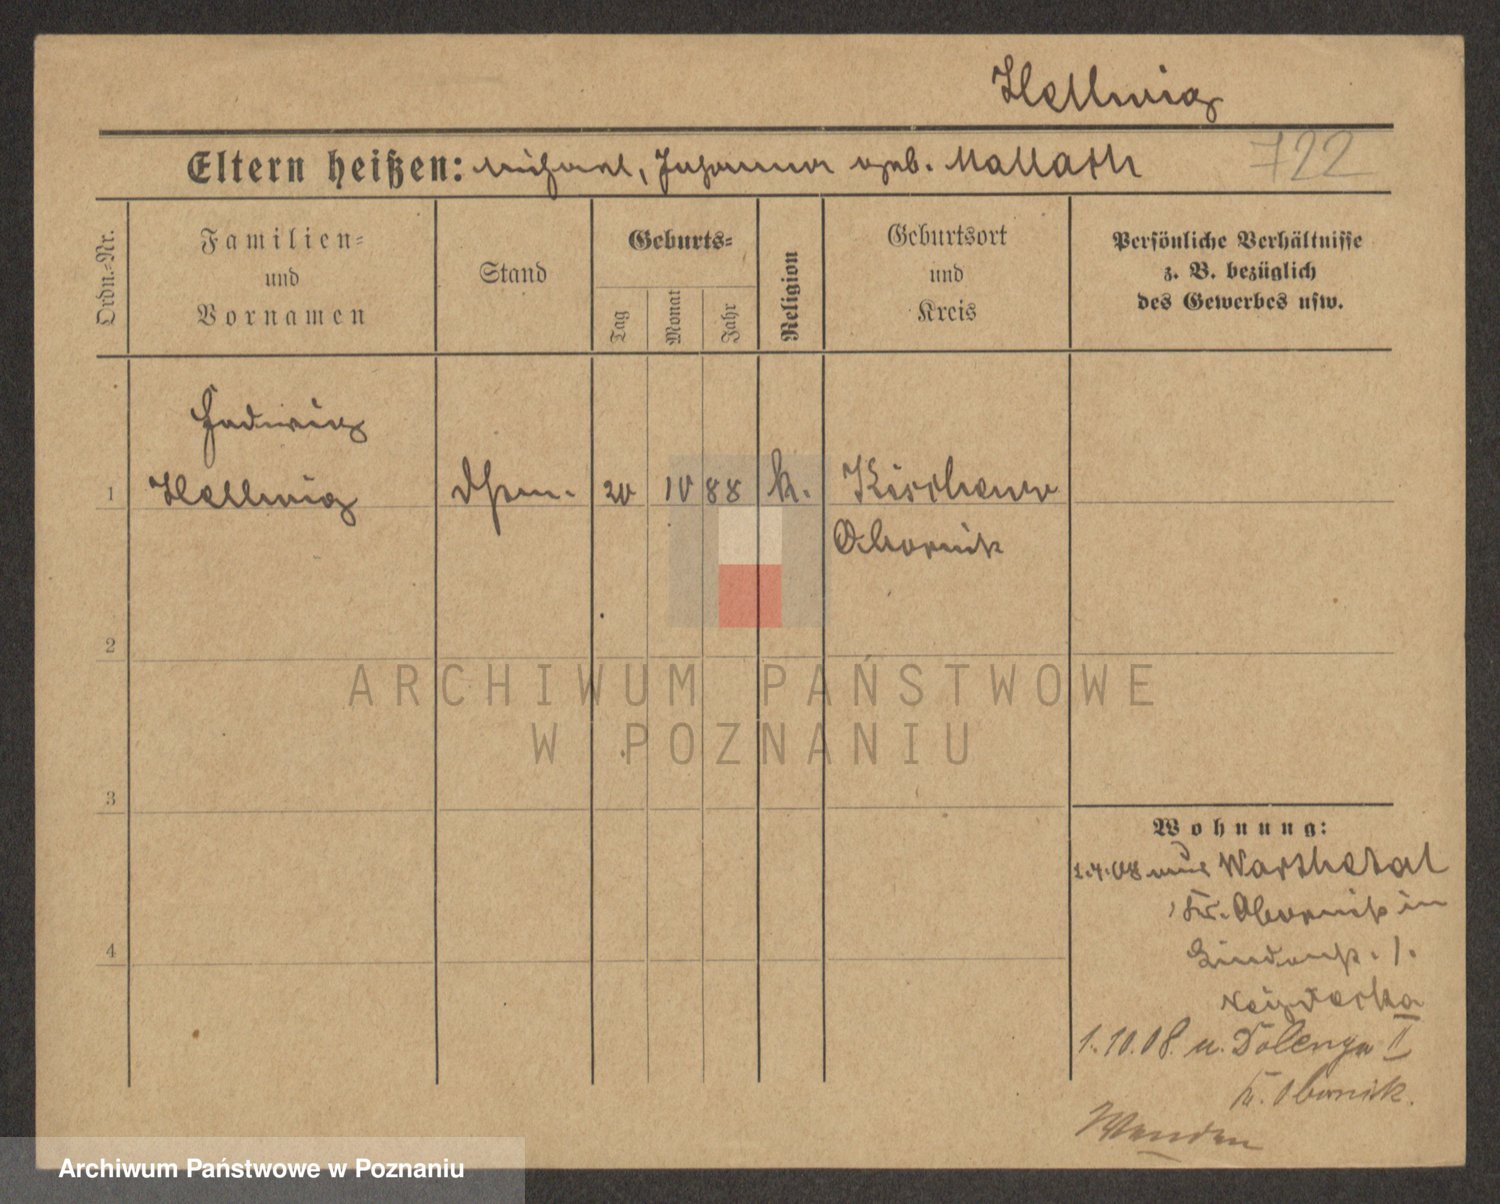 Hellwig
Eltern heißen: Michael, Johanna geb. Mallach
722
Ordn.-Nr.
Familien-
und
Vornamen
Stand
Geburts-
Tag
Monat
Jahr
Religion
Geburtsort
und
Kreis
Persönliche Verhältnisse
z. B. bezüglich
des Gewerbes usw.
Hedwig
1 Hellwig 20 10 88 k.
Obornik
2
ARCHIWUM PAŃSTWOWE
W POZNANIU
3
4
Wohnung:
1.4.08 aus Warthetal
Kr. Obornik in
Lindenstr. 1.
1.10.08. n. Dolenga II
Kr. Obornik.
Archiwum Państwowe w Poznaniu